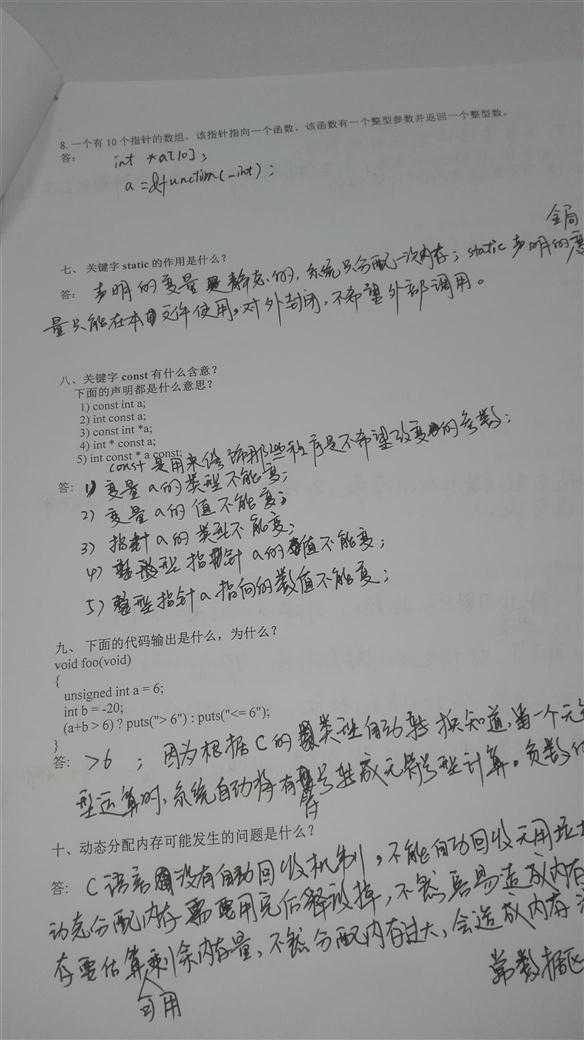 8. 一个有 10 个指针的数组，该指针指向一个函数，该函数有一个整型参数并返回一个整型数。
答： int *a[10];
a = &function(_int);
七、 关键字 static 的作用是什么？
全局
答： 声明的变量是静态的，系统只分配一次内存；static 声明的变
量只能在本文件使用。对外封闭，不希望外部调用。
八、关键字 const 有什么含意？
下面的声明都是什么意思？
1) const int a;
2) int const a;
3) const int *a;
4) int * const a;
5) int const * a const;
const 是用来修饰那些程序是不希望改变的参数；
答： 1) 变量 a 的类型不能变；
2) 变量 a 的值不能变；
3) 指针 a 的类型不能变；
4) 整型指针 a 的值不能变；
5) 整型指针 a 指向的数值不能变；
九、 下面的代码输出是什么，为什么？
void foo(void)
{
unsigned int a = 6;
int b = -20;
(a+b > 6) ? puts("> 6") : puts("<= 6");
}
答： >6 ； 因为根据 C 的类型自动转换知道，当一个无
型运算时，系统自动将有符号转成无符号型计算。负数
十、动态分配内存可能发生的问题是什么？
答： C 语言没有自动回收机制，不能自动回收无用
动态分配内存需要用完后释放掉，不然容易造成内存
存要估算剩余内存量，不然分配内存过大，会造成内存
可用
常数据区